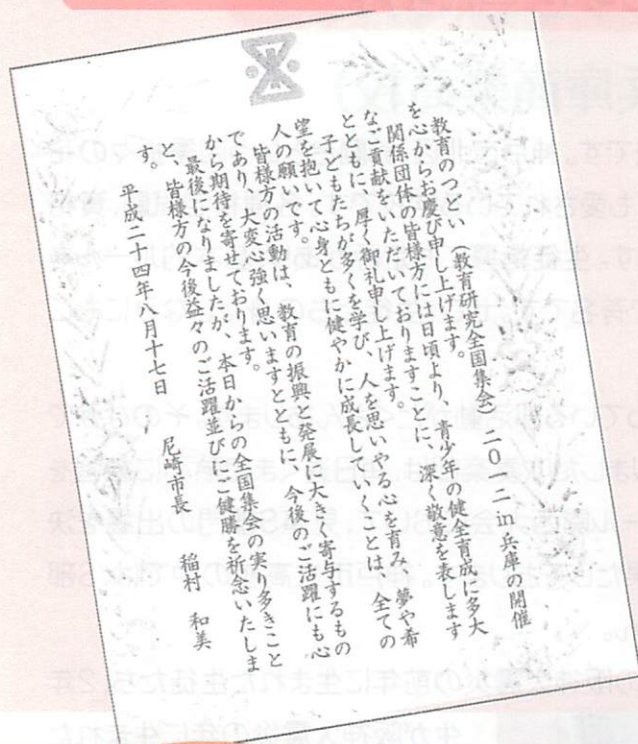 教育のつどい（教育研究全国集会）二〇一二in兵庫の開催
を心からお慶び申し上げます。
関係団体の皆様方には日頃より、青少年の健全育成に多大
なご貢献をいただいておりますことに、深く敬意を表します
とともに、厚く御礼申し上げます。
子どもたちが多くを学び、人を思いやる心を育み、夢や希
望を抱いて心身ともに健やかに成長していくことは、全ての
人の願いです。
皆様方の活動は、教育の振興と発展に大きく寄与するもの
であり、大変心強く思いますとともに、今後のご活躍にも心
から期待を寄せております。
最後になりましたが、本日からの全国集会の実り多きこと
と、皆様方の今後益々のご活躍並びにご健勝を祈念いたしま
す。
平成二十四年八月十七日
尼崎市長　稲村　和美